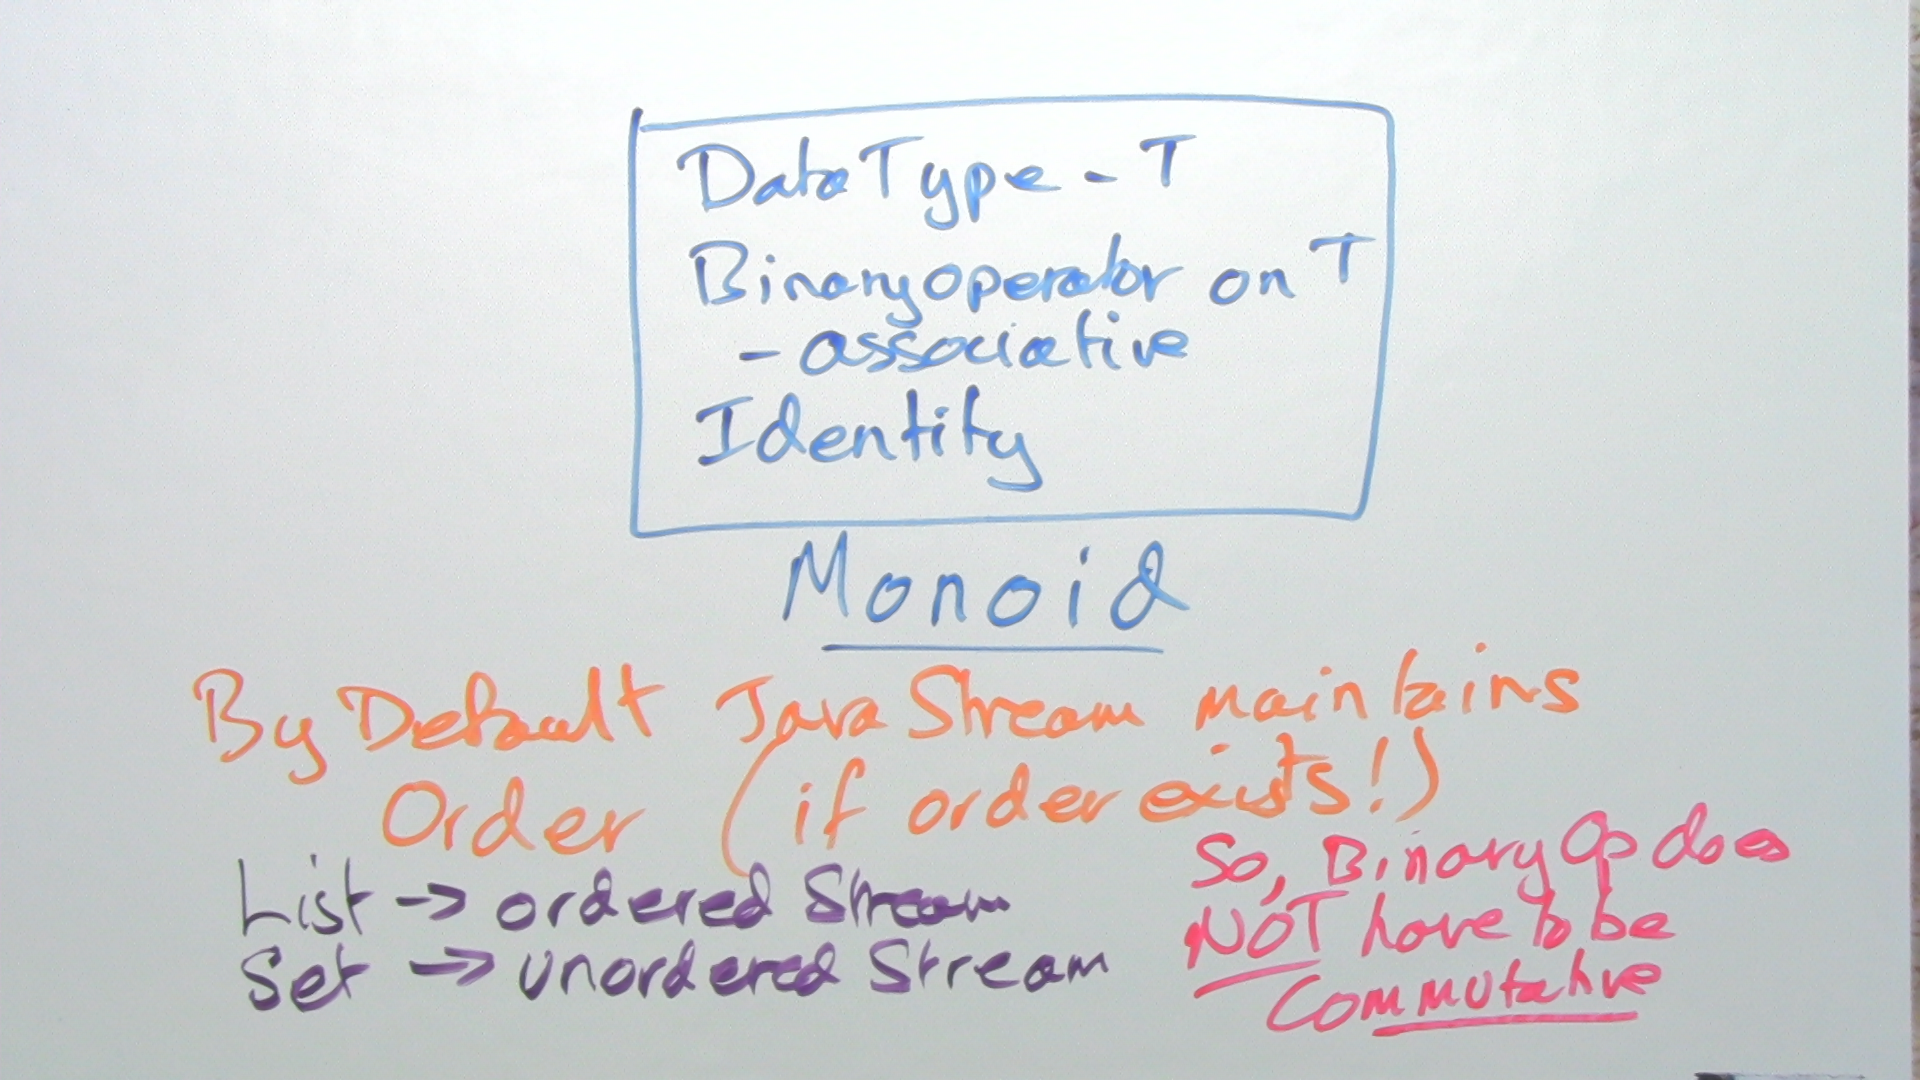 DataType - T
Binaryoperator on T
- associative
Identity
Monoid
By Default Java Stream maintains
Order (if order exists!)
List -> ordered Stream
Set -> unordered Stream
So, Binary Op does
NOT have to be
Commutative